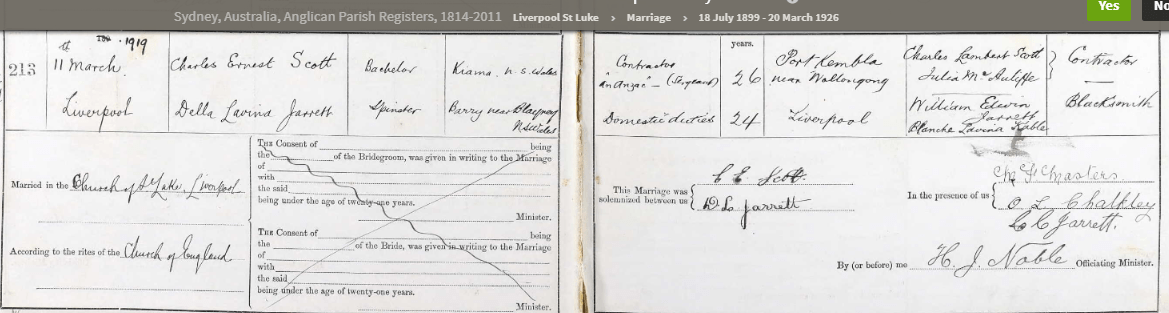 Sydney, Australia, Anglican Parish Registers, 1814-2011 Liverpool St Luke › Marriage › 18 July 1899 - 20 March 1926
Yes
No
213
1919
11 March.
Liverpool
Charles Ernest Scott
Della Lavina Jarrett
Bachelor
Spinster
Kiama. N. S. Wales
Barry near Blayney
N.S.Wales
Married in the Church of St Luke, Liverpool
According to the rites of the Church of England
THE Consent of being
the of the Bridegroom, was given in writing to the Marriage
of
with
the said
being under the age of twenty-one years.
Minister.
THE Consent of being
the of the Bride, was given in writing to the Marriage
of
with
the said
being under the age of twenty-one years.
Minister.
Contractor
"an Anzac" – (Sergeant)
Domestic duties
years.
26
24
Port Kembla
near Wollongong
Liverpool
Charles Lambert Scott
Julia McAuliffe
William Edwin
Jarrett
Blanche Lavina Kable
Contractor
Blacksmith
This Marriage was
solemnized between us
C. E. Scott.
D L Jarrett
In the presence of us
Masters
O. L. Chalkley
C C Jarrett.
By (or before) me H. J. Noble Officiating Minister.